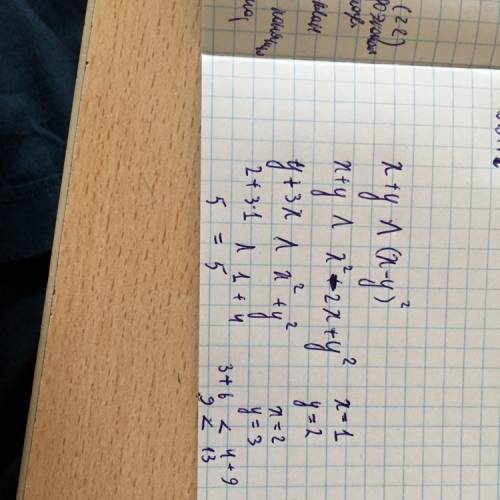 (22)
x+y ∧ (x-y)²
x+y ∧ x²-2x+y²
y+3x ∧ x²+y²
2+3·1 ∧ 1+4
5 = 5
x=1
y=2
x=2
y=3
3+6 < 4+9
9 < 13